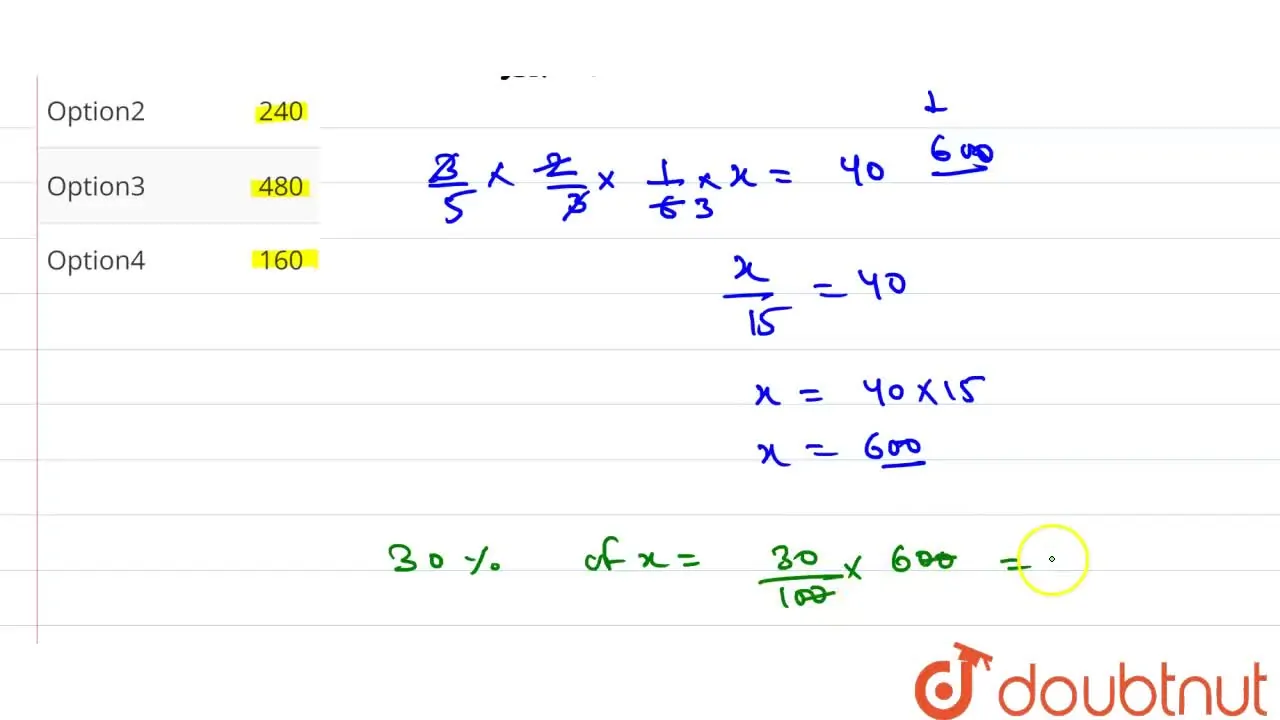 Option2 240
Option3 480
Option4 160
1
600
3/5 × 2/3 × 1/6 3 × x = 40
x/15 = 40
x = 40 × 15
x = 600
30 % of x = 30/100 × 600 =
doubtnut